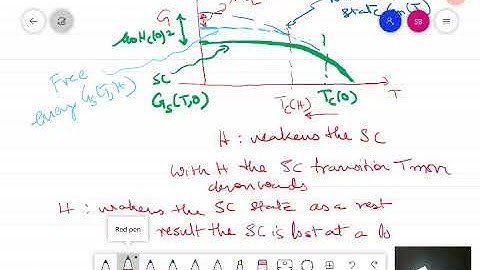 G
state Gn(T)
μ0Hc(0)²
Free
energy Gs(T,H)
SC
Gs(T,0)
Tc(H)
Tc(0)
T
H : weakens the SC
With H the SC transition T move
downwards
H : weakens the SC state as a rest
result the SC is lost at a lo
Red pen
SB